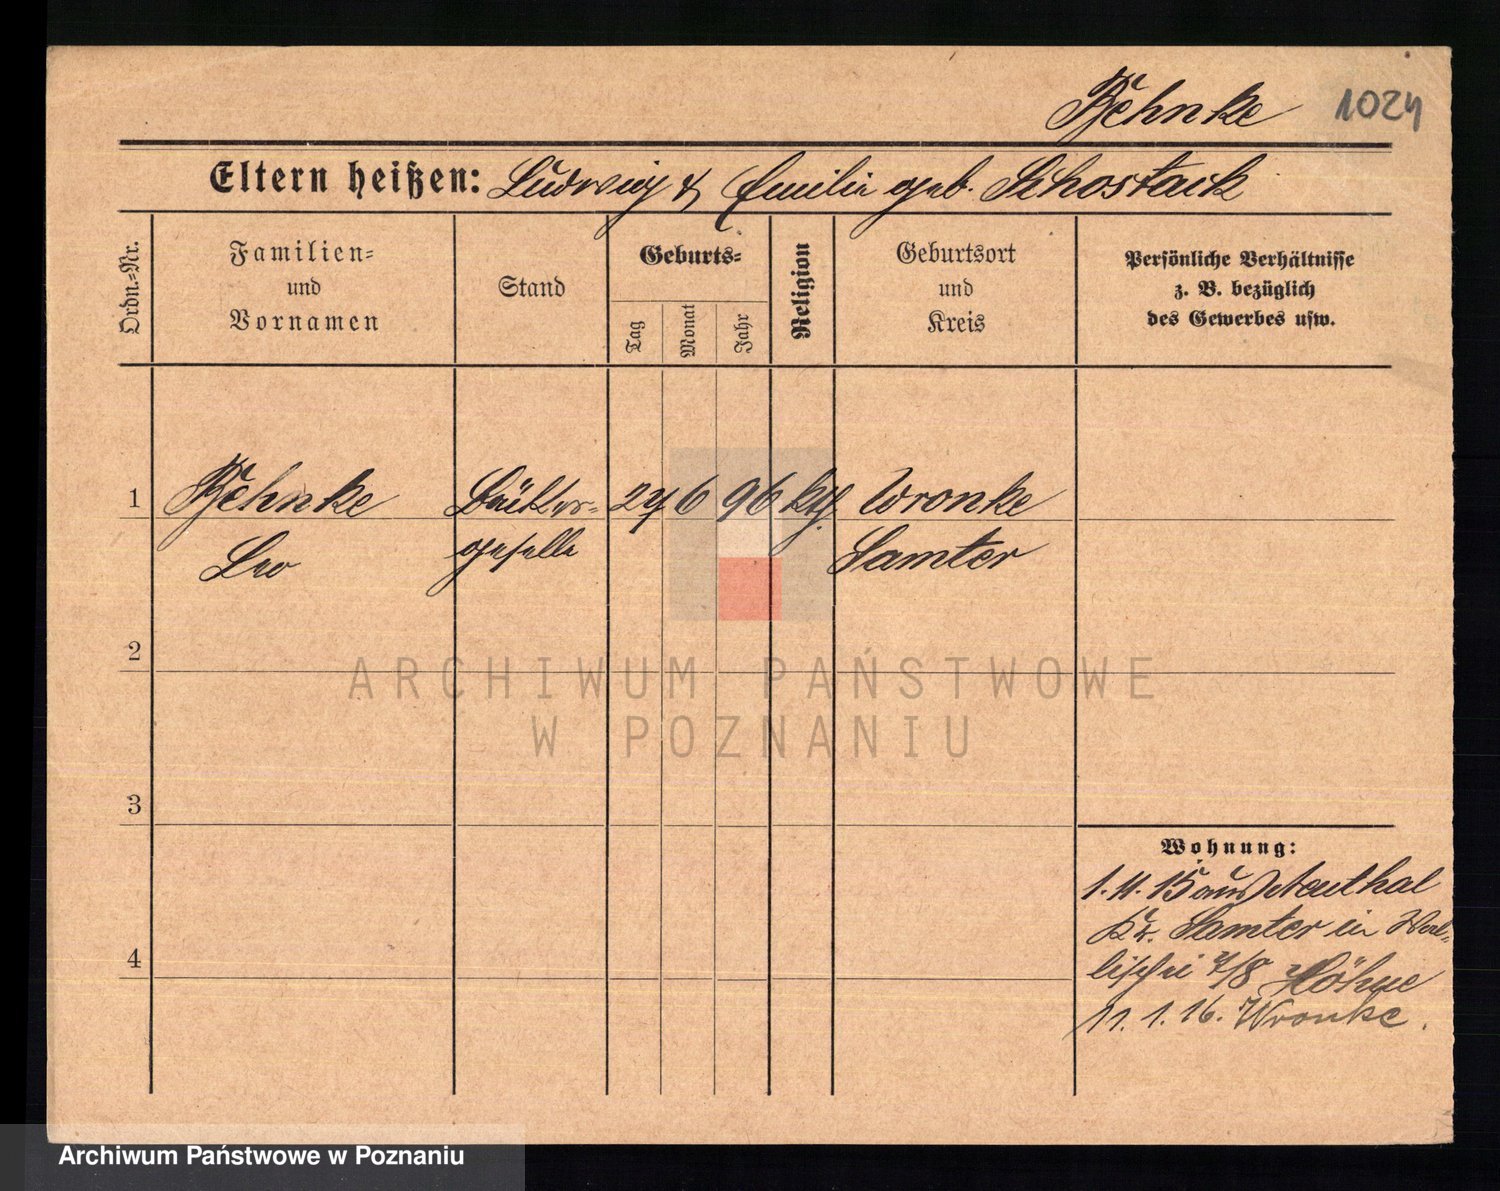 Behnke 1024
Eltern heißen: Ludwig & Emilie geb. Schostack
Ordn.-Nr.
Familien-
und
Vornamen
Stand
Geburts-
Tag
Monat
Jahr
Religion
Geburtsort
und
Kreis
Persönliche Verhältnisse
z. B. bezüglich
des Gewerbes usw.
1 Behnke 6 96 kth. Wronke
Leo geselle Samter
2
ARCHIWUM PAŃSTWOWE
W POZNANIU
3
Wohnung:
1. 11. 15 aus Neuthal
Kr. Samter in Wal-
lischei Höhne
11. 1. 16. Wronke.
4
Archiwum Państwowe w Poznaniu